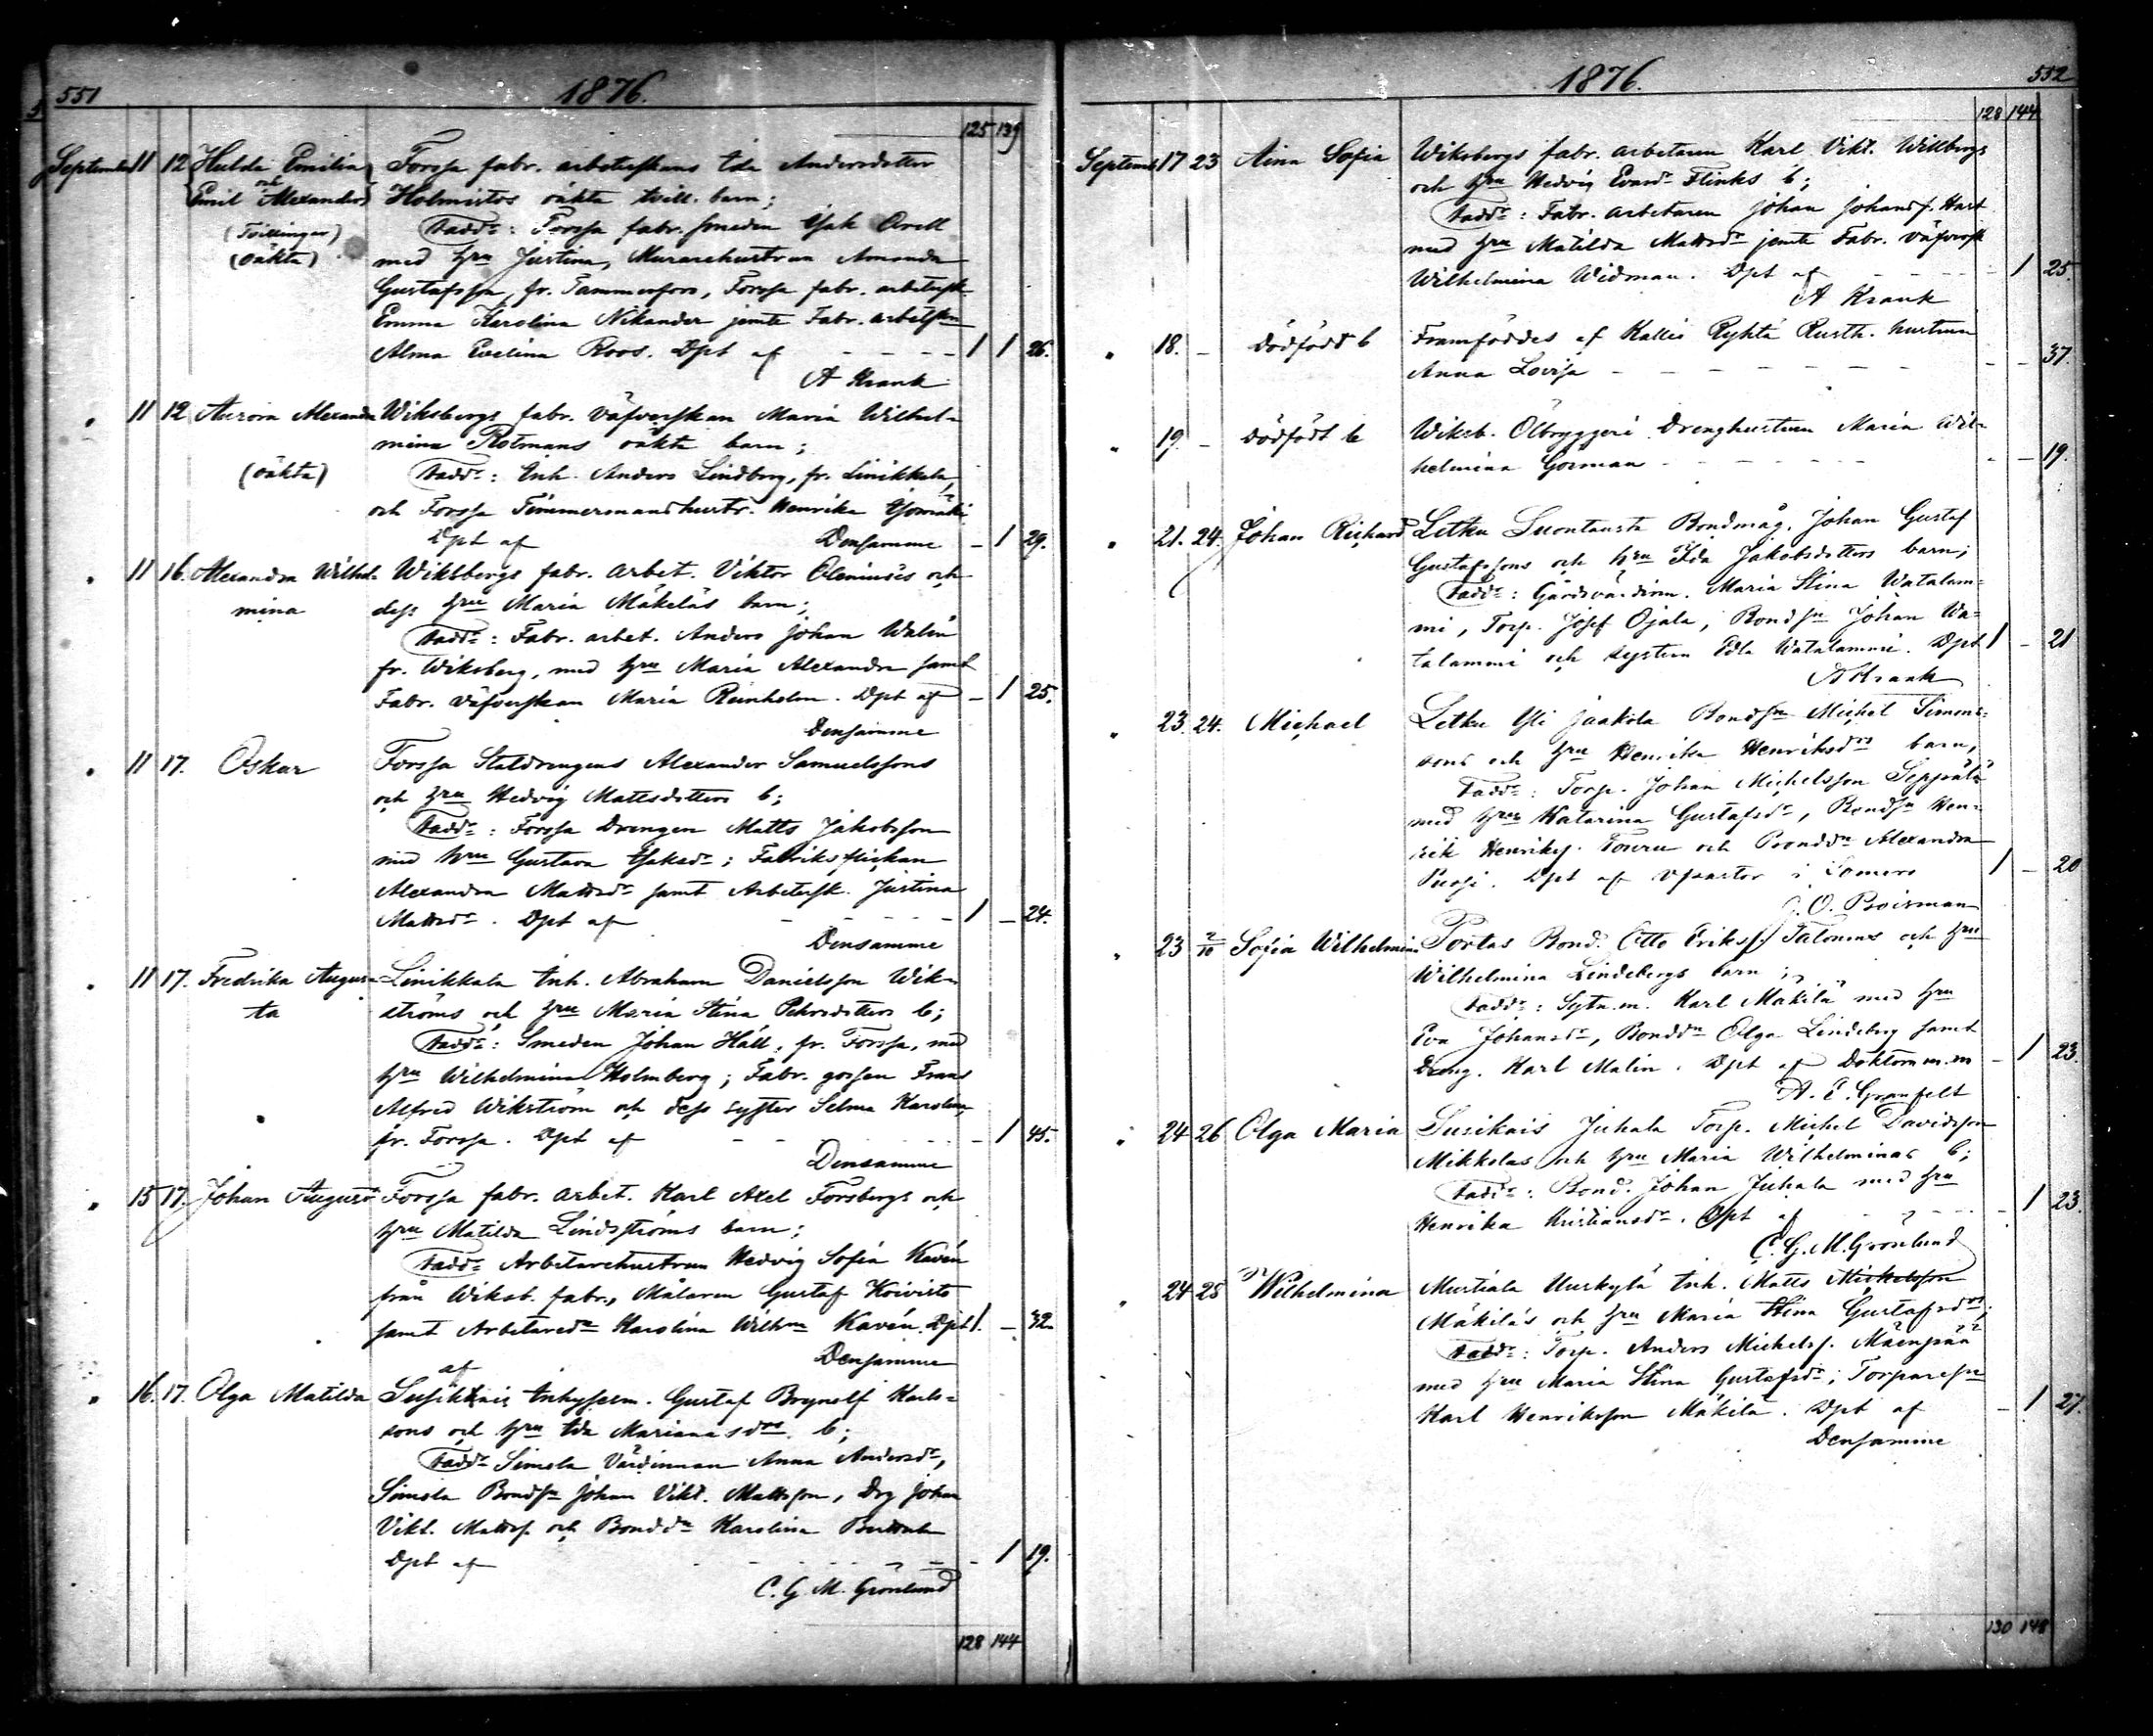 551
1876.
125 139
September 11 12 Hulda Emilia Forssa fabr. arbeterskans Ida Andersdotter
och Emil Alexander Holmistos oäkta tvill. barn;
(Tvillingar) Fadd: Forssa fabr. smeden Isak Orell
(oäkta) med hru Justina, Murarehustrun Amanda
Gustafsson, fr. Tammerfors, Forssa fabr. arbetersk
Emma Karolina Nikander jemte Fabr. arbetskn
Alma Evelina Roos. Dpt af - - - - 1 1 26.
A Krank
" 11 12 Aurora Alexandra Wiksbergs fabr. väfverskan Maria Wilhel-
mina Rotmans oäkta barn;
(oäkta) Fadd: Inh. Anders Lindberg, fr. Linikkala,
och Forssa Timmermanshustr. Henrika
Dpt af Densamme - 1 29.
" 11 16. Alexandra Wilhel- Wiksbergs fabr. arbet. Viktor och
mina dess hru Maria Mäkeläs barn;
Fadd: Fabr. arbet. Anders Johan Walin
fr. Wiksberg, med hru Maria Alexandra samt
Fabr. väfverskan Maria Reinholm. Dpt af - 1 25.
Densamme
" 11 17. Oskar Forssa Staldrengens Alexander Samuelssons
och hru Hedvig Mattsdotters b;
Fadd: Forssa Drengen Matts Jakobsson
med hru Gustava Isaksdr; Fabriksflickan
Alexandra Mattsdr samt Arbetersk. Justina
Mattsdr. Dpt af - - - - - 1 - 24.
Densamme
" 11 17. Fredrika Augus- Linikkala Inh. Abraham Danielsson Wik-
ta ströms och hru Maria Stina Pehrsdotters b;
Fadd: Smeden Johan Häll, fr. Forssa, med
hru Wilhelmina Holmberg; Fabr. gossen Frans
Alfred Wikström och dess syster Selma Karolina,
fr. Forssa. Dpt af - - - - - 1 45.
Densamme
" 15 17. Johan August Forssa fabr. arbet. Karl Axel Forsbergs och
hru Matilda Lindströms barn;
Fadd Arbetarehustrun Hedvig Sofia Kavén
från Wiksb. fabr., Målaren Gustaf Koivisto
samt Arbetaredr Karolina Wilhna Kavén. Dpt 1. - 32.
af Densamme
" 16. 17. Olga Matilda Susikkais Inhysesm. Gustaf Brynolf Karls-
sons och hru Ida Mariana sdrs b;
Fadd Simola Värdinnan Anna Andersdr,
Simola Bondsn Johan Vikt. Mattsson, Drg Johan
Vikt. Mattss och Bonddn Karolina
Dpt af - - - - - 1 19.
C. G. M. Grönlund
128 144
552
1876.
128 144
Septemb 17 23 Aina Sofia Wiksbergs fabr. arbetaren Karl Vikt. Willbergs
och hru Hedvig Evardr Flinks b;
Fadd: Fabr. arbetaren Johan Johansf. Hart
med hru Matilda Mattsdr jemte Fabr. väfversk
Wilhelmina Widman. Dpt af - - - 1 25.
A Krank
" 18. - dödfödt b Framföddes af Kallis Ryhtä Rusth. hustrun
Anna Lovisa - - - - - - - - 37.
" 19. - dödfödt b Wiksb. Ölbryggeri Drenghustrun Maria Wil-
helmina Görman - - - - - - - 19.
" 21. 24. Johan Richard Letku Suontausta Bondmåg. Johan Gustaf
Gustafssons och hru Ida Jakobsdotters barn;
Fadd: Gårdsvärdinn. Maria Stina Watalam-
mi, Torp. Josef Ojala, Bondsn Johan Wa-
talammi och systern Edla Watalammi. Dpt 1 - 21
A Krank
" 23. 24. Michael Letku Yli Jaakola Bondsn Michel Simons-
sons och hru Henrika Henriksdrs barn,
Fadd: Torp. Johan Michelsson Seppälä
med hru Katarina Gustafsdr, Bondsn Hen-
rik Henrikss. Touru och Bonddn Alexandra
Dpt af Vpastor i Somero 1 - 20
J. O. Boisman
" 23 2/10 Sofia Wilhelmina Portas Bond. Otto Erikss. Talonens och hru
Wilhelmina Lindebergs barn;
Fadd: Sytn.m. Karl Mäkilä med hru
Eva Johansdr, Bonddn Olga Lindeberg samt
Dreng. Karl Malin. Dpt af Doktorn m.m - 1 23.
A. E. Granfelt
" 24 26 Olga Maria Susikais Juhala Torp. Michel Davidsson
Mikkolas och hru Maria Wilhelminas b;
Fadd: Bond. Johan Juhala med hru
Henrika Kristiansdr. Dpt af - - - - 1 23.
C. G. M. Grönlund
" 24 28 Wilhelmina Murtiala Uurkylä Inh. Matts Michelsson
Mäkiläs och hru Maria Stina Gustafsdrs;
Fadd: Torp. Anders Michelss. Mäenpää
med hru Maria Stina Gustafsdr; Torparesn
Karl Henriksson Mäkilä. Dpt af - 1 27.
Densamme
130 148